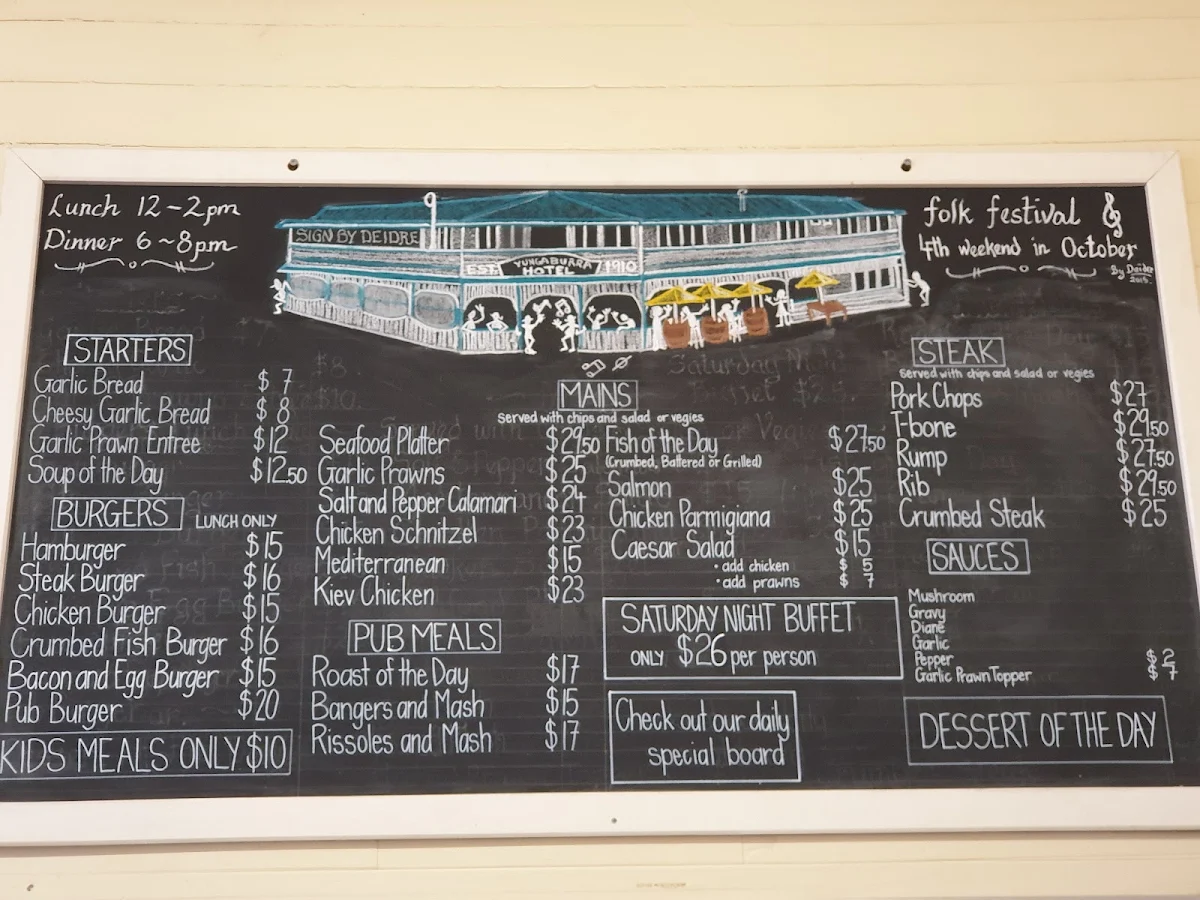 Lunch 12-2pm
Dinner 6~8pm
SIGN BY DEIDRE
EST. YUNGABURRA HOTEL 1910
folk festival
4th weekend in October
By Deidre
STARTERS
Garlic Bread $7
Cheesy Garlic Bread $8
Garlic Prawn Entree $12
Soup of the Day $12.50
BURGERS LUNCH ONLY
Hamburger $15
Steak Burger $16
Chicken Burger $15
Crumbed Fish Burger $16
Bacon and Egg Burger $15
Pub Burger $20
KIDS MEALS ONLY $10
MAINS
Served with chips and salad or vegies
Seafood Platter $29.50
Garlic Prawns $25
Salt and Pepper Calamari $24
Chicken Schnitzel $23
Mediterranean $15
Kiev Chicken $23
PUB MEALS
Roast of the Day $17
Bangers and Mash $15
Rissoles and Mash $17
Fish of the Day $27.50
(Crumbed, Battered or Grilled)
Salmon $25
Chicken Parmigiana $25
Caesar Salad $15
• add chicken $5
• add prawns $7
SATURDAY NIGHT BUFFET
ONLY $26 per person
Check out our daily
special board
STEAK
Served with chips and salad or vegies
Pork Chops $27
T-bone $29.50
Rump $27.50
Rib $29.50
Crumbed Steak $25
SAUCES
Mushroom
Gravy
Diane
Garlic
Pepper $2
Garlic Prawn Topper $7
DESSERT OF THE DAY